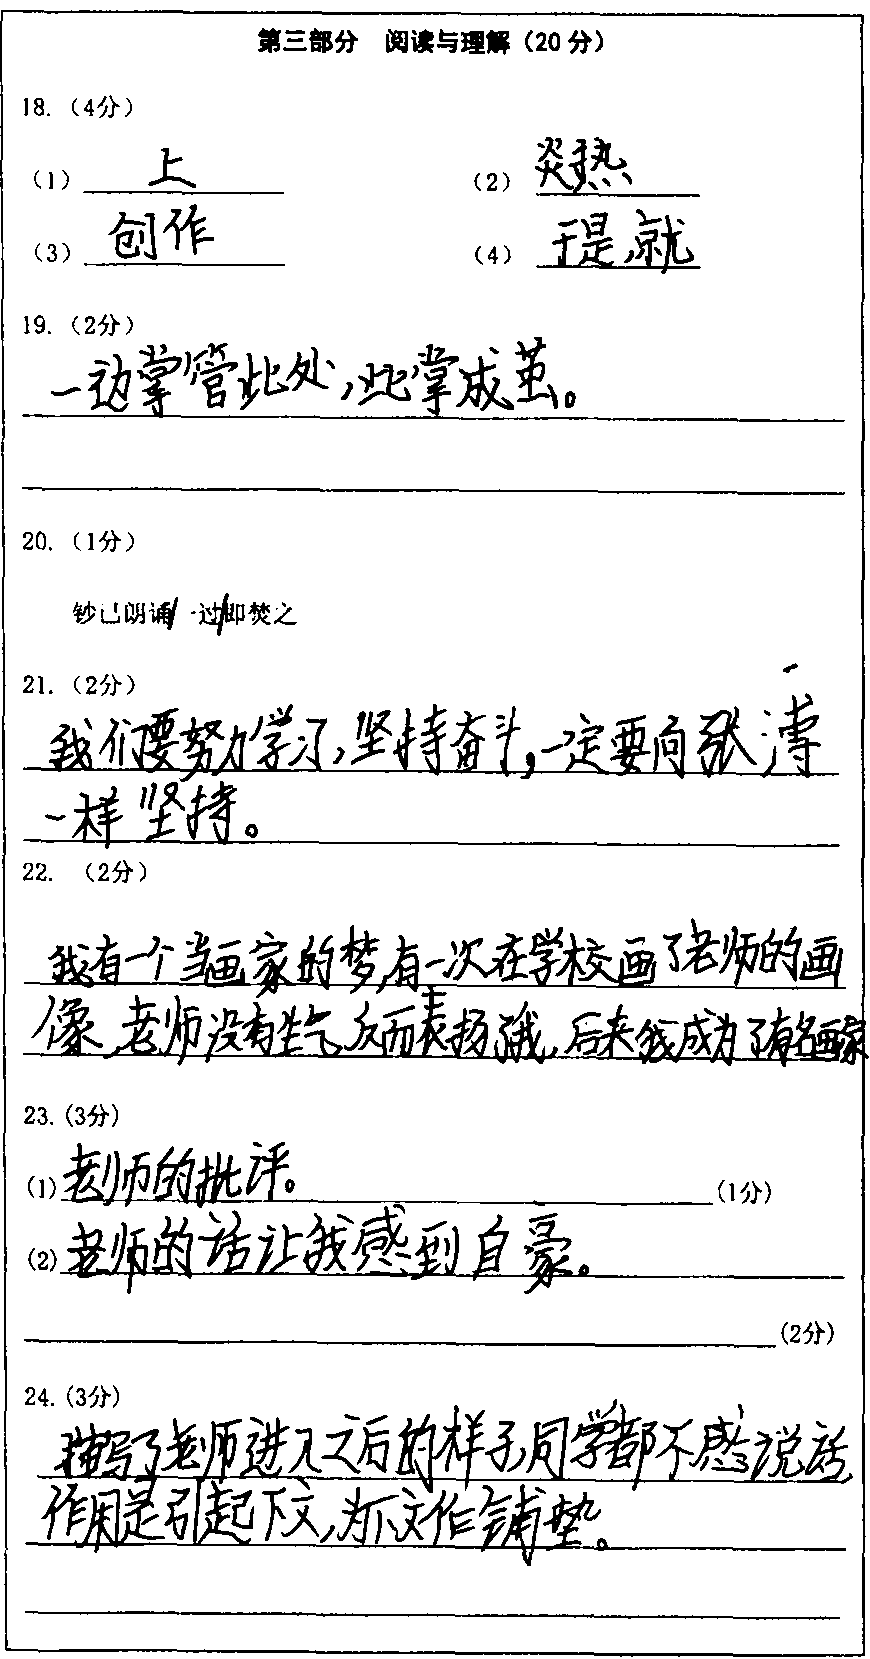 第三部分 阅读与理解（20分）
18.（4分）
（1）上 （2）炎热
（3）创作 （4）于是,就
19.（2分）
一边掌管此处,此掌成茧。
20.（1分）
钞已朗诵/一过/即焚之
21.（2分）
我们要努力学习,坚持奋斗,一定要向张溥
一样坚持。
22. （2分）
我有一个当画家的梦,有一次在学校画了老师的画
像,老师没有生气,反而表扬了我,后来我成为了有名画家
23.(3分)
(1)老师的批评。(1分)
(2)老师的话让我感到自豪。
(2分)
24.(3分)
描写了老师进入之后的样子,同学都不感说话
作用是引起下文,为下文作铺垫。